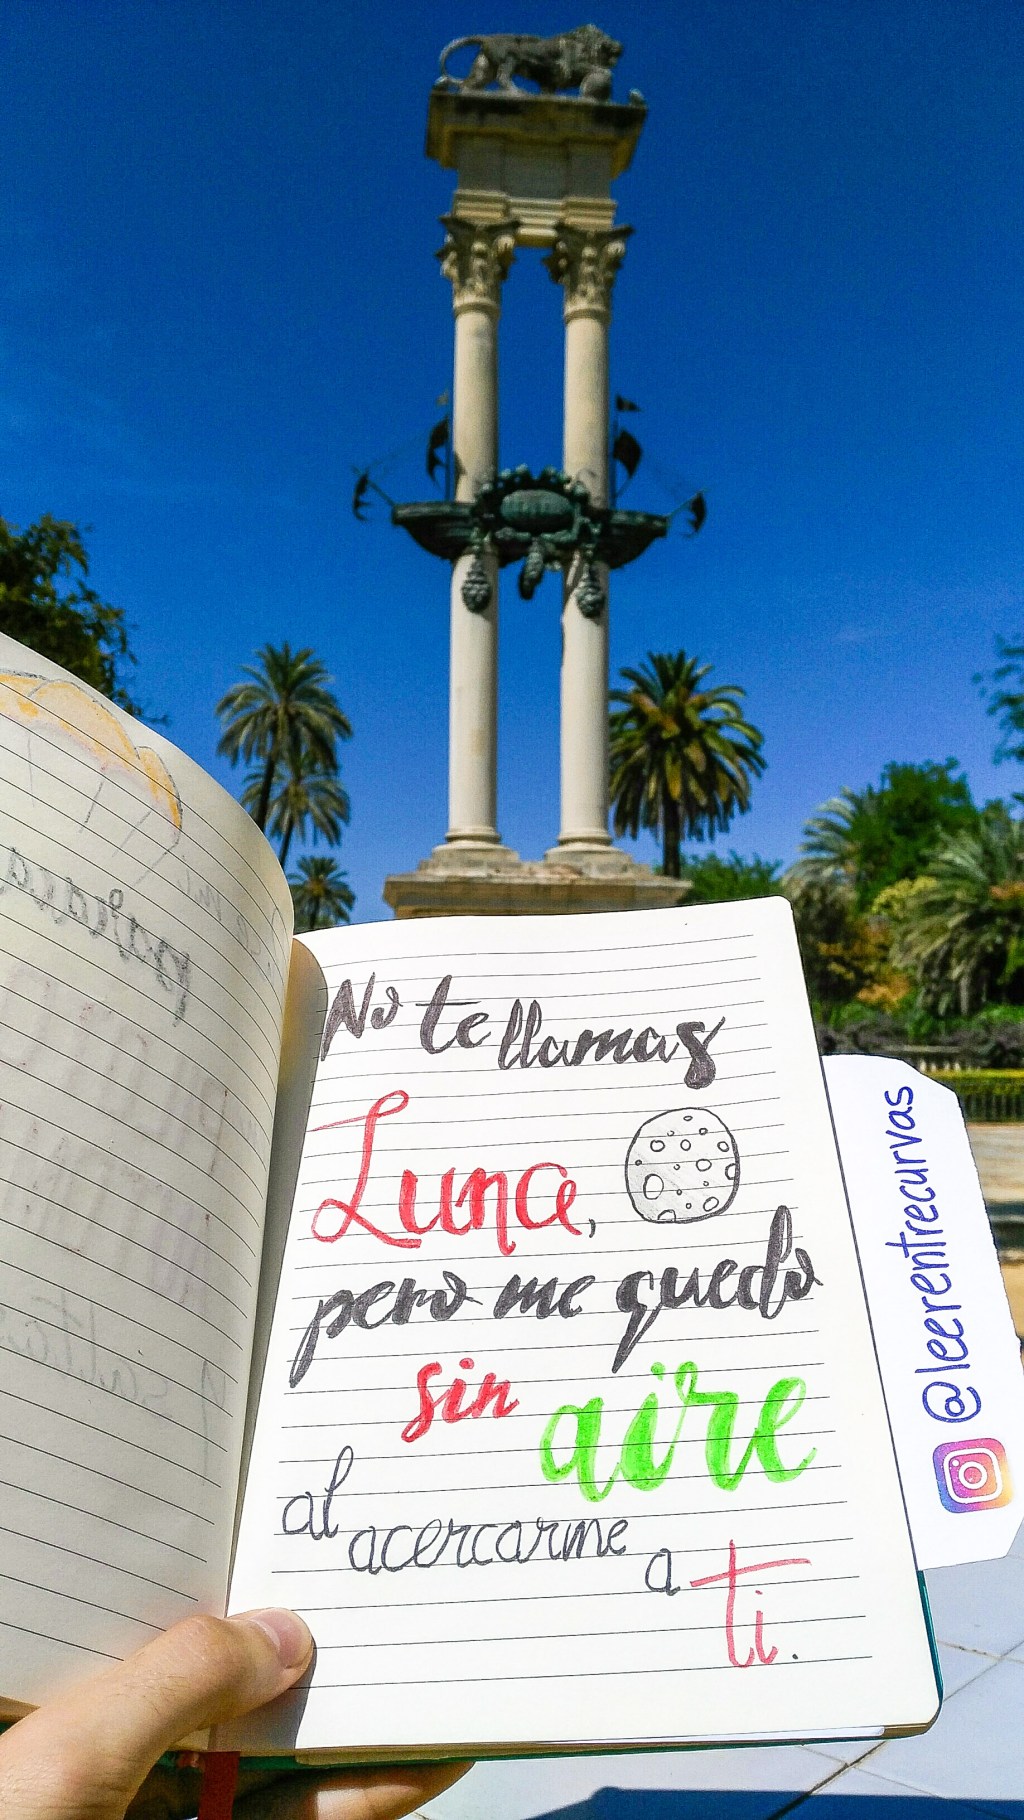 No te llamas
Luna,
pero me quedo
sin aire
al acercarme
a ti.
@leerentrecurvas